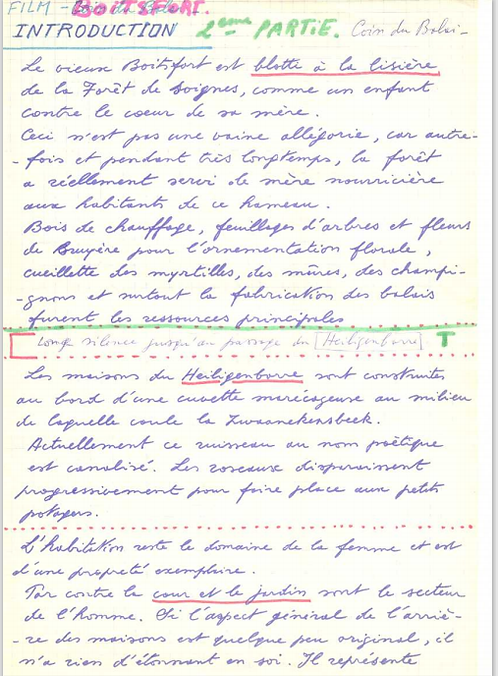 FILM - BOITSFORT.
INTRODUCTION 2ème PARTIE. Coin du Balai -
Le vieux Boitsfort est blotte à la lisière
de la Forêt de Soignes, comme un enfant
contre le coeur de sa mère.
Ceci n'est pas une vaine allégorie, car autre-
- fois et pendant très longtemps, la forêt
a réellement servi de mère nourricière
aux habitants de ce hameau.
Bois de chauffage, feuillages d'arbres et fleurs
de Bruyère pour l'ornementation florale,
cueillette des myrtilles, des mûres, des champi-
-gnons et surtout la fabrication des balais
furent les ressources principales
Long silence jusqu'au passage du [Heiligenborre] T
Les maisons du Heiligenborre sont construites
au bord d'une cuvette marécageuse au milieu
de laquelle coule la Zwaanekensbeek.
Actuellement ce ruisseau au nom poétique
est canalisé. Les roseaux disparaissent
progressivement pour faire place aux petits
potagers.
L'habitation reste le domaine de la femme et est
d'une propreté exemplaire.
Par contre la cour et le jardin sont le secteur
de l'homme. Si l'aspect général de l'arriè-
- re des maisons est quelque peu original, il
n'a rien d'étonnant en soi. Il représente